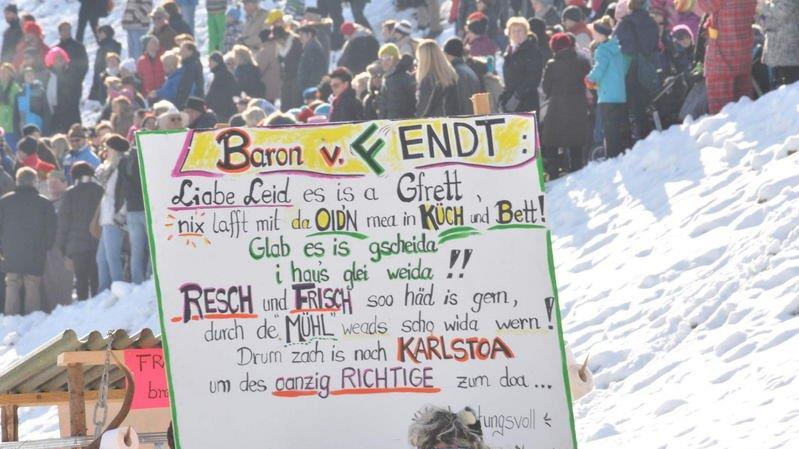 Baron v. FENDT:
Liabe Leid es is a Gfrett,
nix lafft mit da OID'N mea in KÜCH und Bett!
Glab es is gscheida
i hau's glei weida!!
RESCH und FRISCH soo häd is gern,
durch de "MÜHL" weads scho wida wern!
Drum zach is noch KARLSTOA
um des oanzig RICHTIGE zum doa...
tungsvoll
FR
br